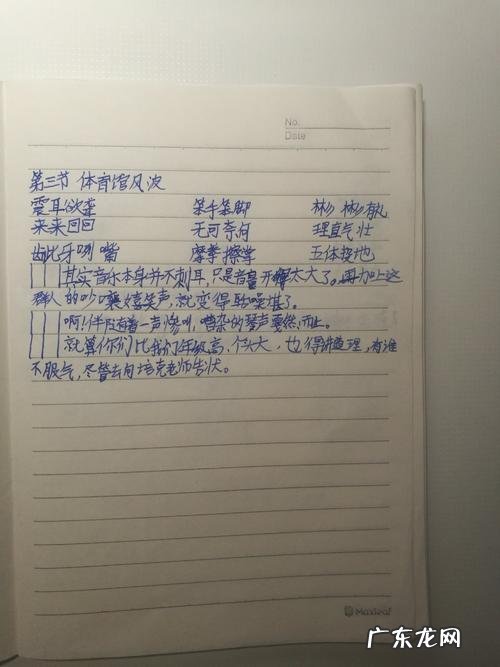 No.
Date
第三节 体育馆风波
震耳欲聋 笨手笨脚 彬彬有礼
来来回回 无可奈何 理直气壮
龇牙咧嘴 摩拳擦掌 五体投地
其实音乐本身并不刺耳,只是音量开得太大了。再加上这
群人的吵嚷嬉笑声,就变得聒噪堪了。
啊!伴随着一声惨叫,嘈杂的琴声戛然而止。
就算你们比我们年级高、个头大,也得讲道理,有谁
不服气,尽管去向培克老师告状。
Maxleaf
广东龙网